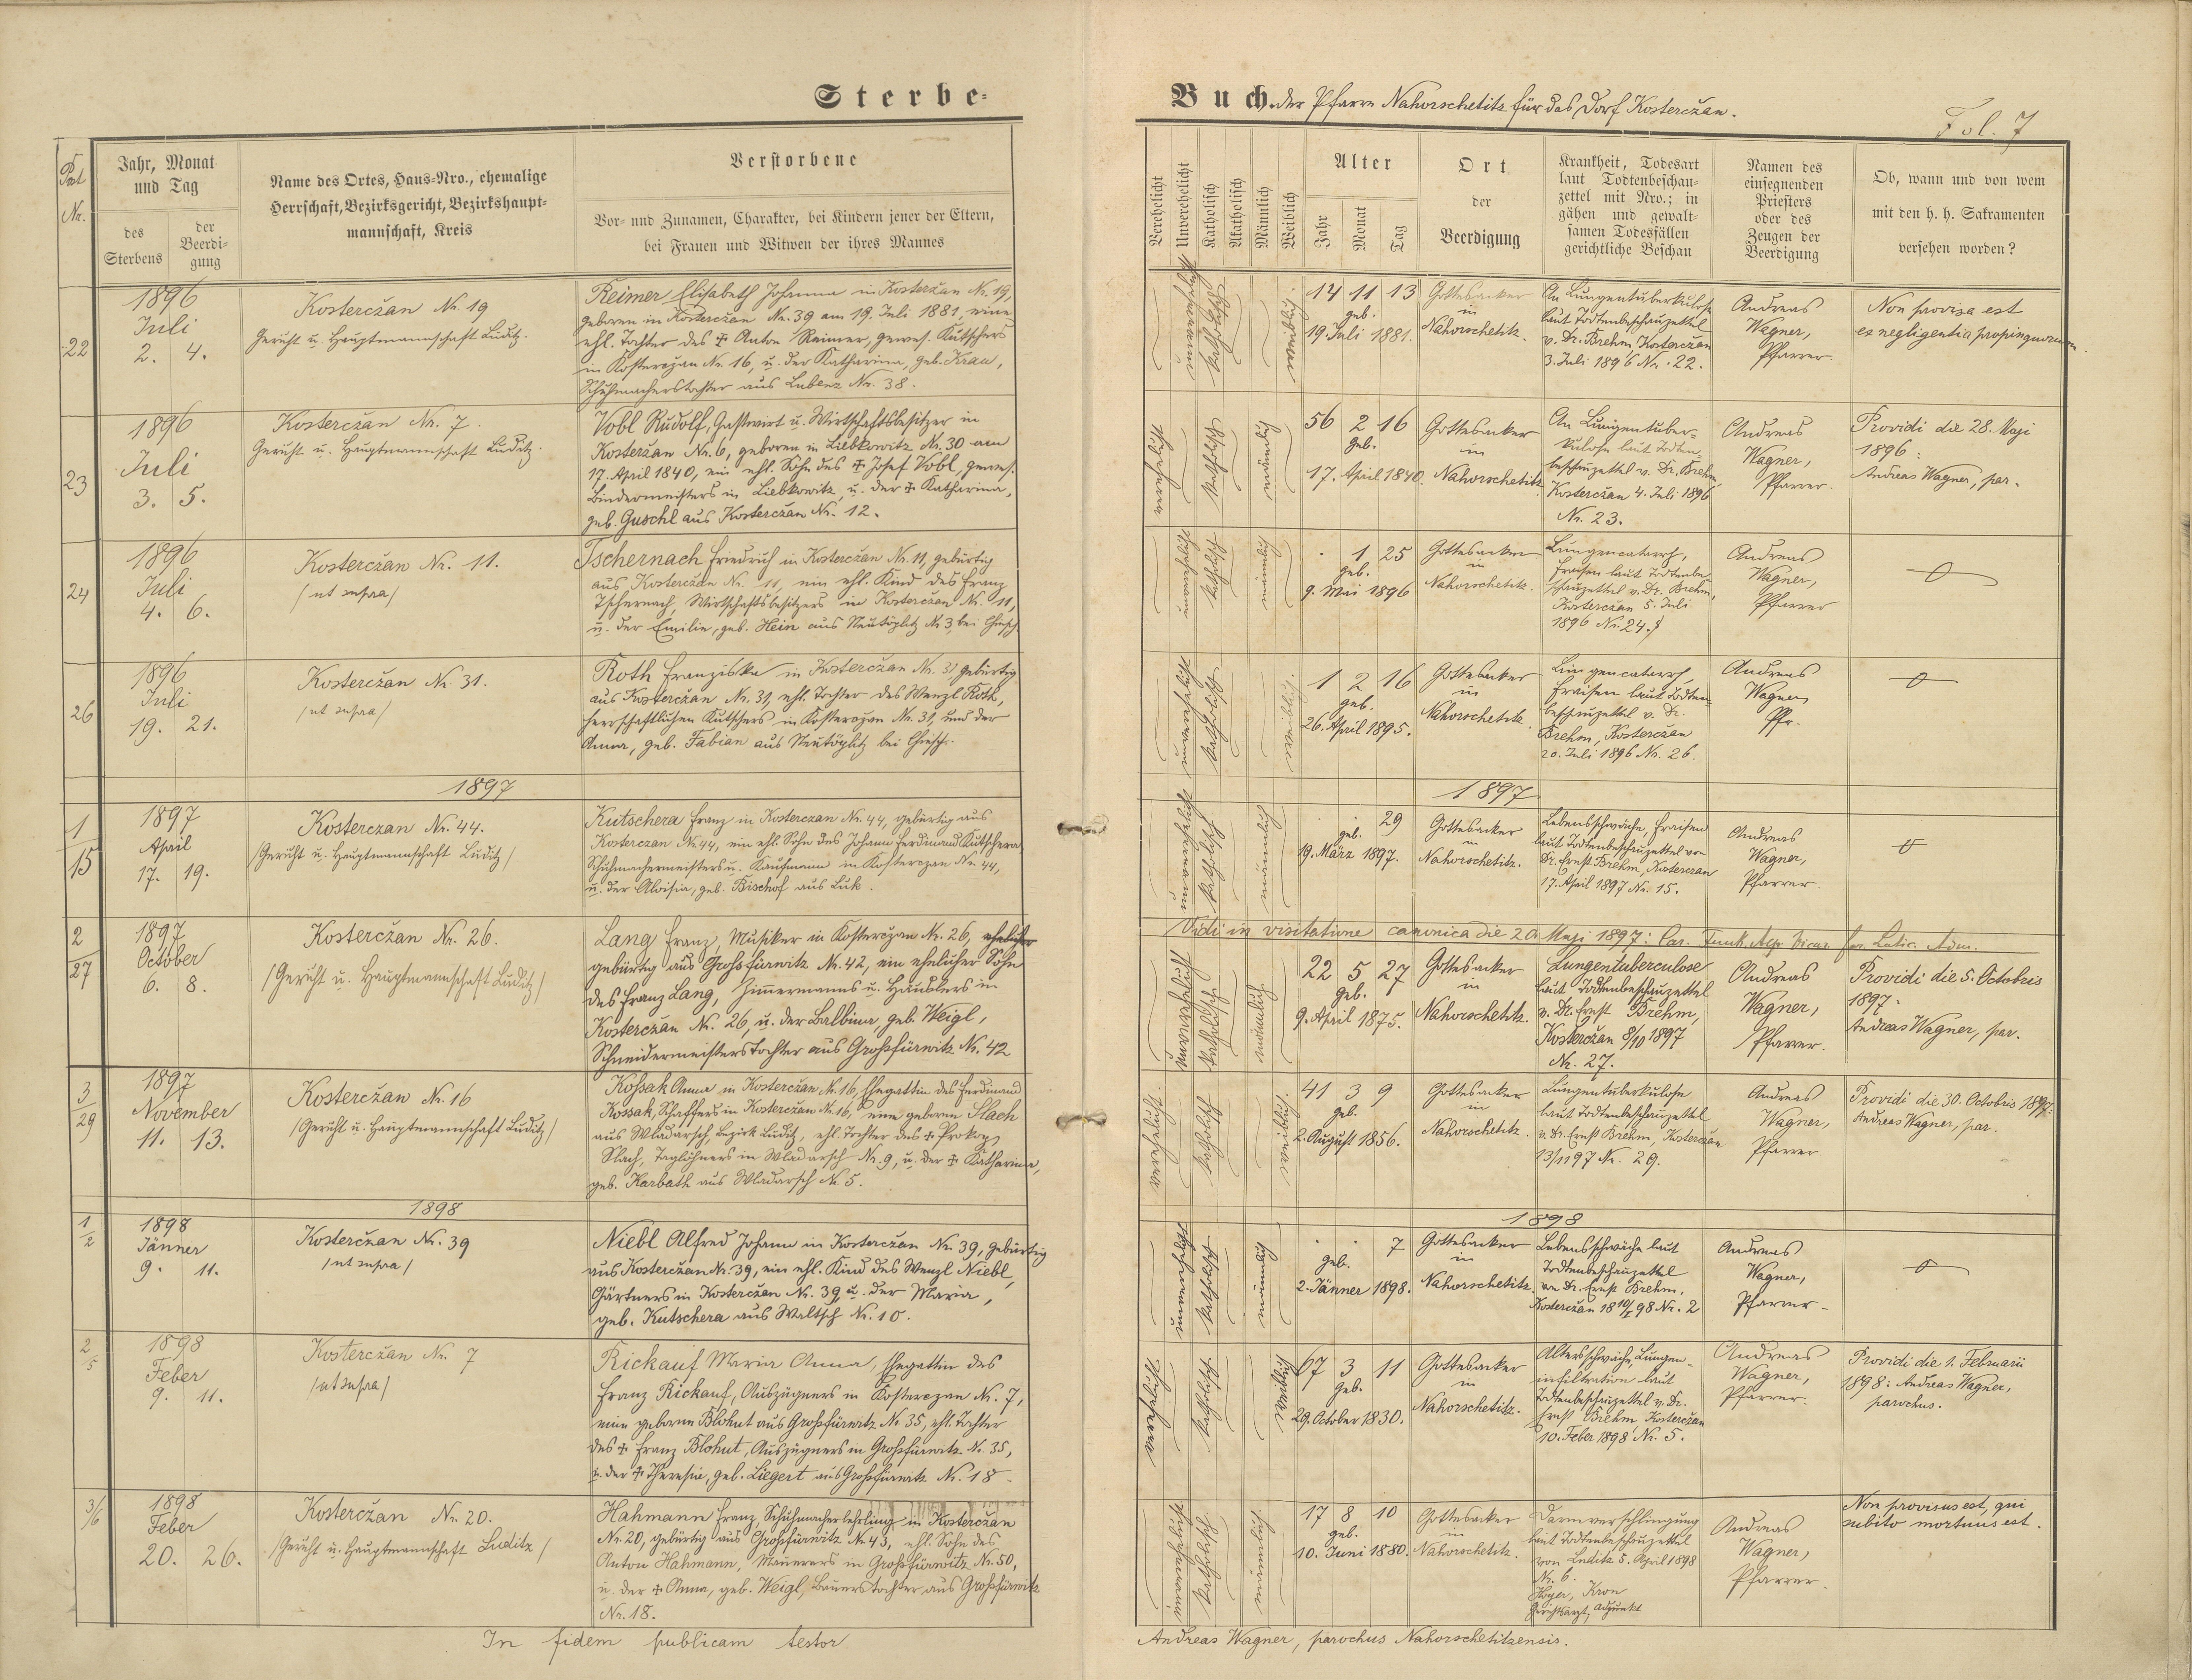 Sterbe-
Buch der Pfarre Nahorschetitz für das Dorf Kosterczan.
Fol. 7
Post Nr.
Jahr, Monat
und Tag
des
Sterbens
der
Beerdi-
gung
Name des Ortes, Haus-Nro., ehemalige
Herrschaft, Bezirksgericht, Bezirkshaupt-
mannschaft, Kreis
Verstorbene
Vor- und Zunamen, Charakter, bei Kindern jener der Eltern,
bei Frauen und Witwen der ihres Mannes
Verehelicht
Unverehelicht
Katholisch
Akatholisch
Männlich
Weiblich
Alter
Jahr
Monat
Tag
Ort
der
Beerdigung
Krankheit, Todesart
laut Todtenbeschau-
zettel mit Nro.; in
gähen und gewalt-
samen Todesfällen
gerichtliche Beschau
Namen des
einsegnenden
Priesters
oder des
Zeugen der
Beerdigung
Ob, wann und von wem
mit den h. h. Sakramenten
versehen worden?
22
1896
Juli
2. 4.
Kosterczan Nr. 19
Gericht u. Hauptmannschaft Luditz.
Reimer Elisabeth Johanna in Kosterčan Nr. 19,
geboren in Kosterczan Nr. 39 am 19. Juli 1881, eine
ehl. Tochter des ✠ Anton Reimer, gewes. Kutschers
in Kosterczan Nr. 16, u. der Katharina, geb. Krau,
Schuhmacherstochter aus Lubenz Nr. 38.
unverehelicht
katholisch
weiblich
14 11 13
geb.
19. Juli 1881.
Gottesacker
in
Nahorschetitz.
An Lungentuberkulose
laut Todtenbeschauzettel
v. Dr. Brehm Kosterczan
3. Juli 1896 Nr. 22.
Andreas
Wagner,
Pfarrer.
Non provisa est
ex negligentia propinquorum.
23
1896
Juli
3. 5.
Kosterczan Nr. 7.
Gericht u. Hauptmannschaft Luditz.
Vobl Rudolf, Gastwirt u. Wirtschaftsbesitzer in
Kosterczan Nr. 6, geboren in Liebkowitz Nr. 30 am
17. April 1840, ein ehl. Sohn des ✠ Josef Vobl, gewes.
Bindermeisters in Liebkowitz, u. der ✠ Katharina,
geb. Guschl aus Kosterczan Nr. 12.
verehelicht
katholisch
männlich
56 2 16
geb.
17. April 1840.
Gottesacker
in
Nahorschetitz.
An Lungentuber-
kulose laut Todten-
beschauzettel v. Dr. Brehm,
Kosterczan 4. Juli 1896
Nr. 23.
Andreas
Wagner,
Pfarrer.
Providi die 28. Maji
1896:
Andreas Wagner, par.
24
1896
Juli
4. 6.
Kosterczan Nr. 11.
/ut supra/
Tschernach Friedrich in Kosterczan Nr. 11, gebürtig
aus Kosterczan Nr. 11, ein ehl. Kind des Franz
Tschernach, Wirtschaftsbesitzers in Kosterczan Nr. 11,
u. der Emilie, geb. Hein aus Neutöplitz Nr. 3, bei Chiesch
unverehelicht
katholisch
männlich
. 1 25
geb.
9. Mai 1896
Gottesacker
in
Nahorschetitz.
Lungencatarrh,
Fraisen laut Todtenbe-
schauzettel v. Dr. Brehm,
Kosterczan 5. Juli
1896 Nr. 24.
Andreas
Wagner,
Pfarrer
26
1896
Juli
19. 21.
Kosterczan Nr. 31.
/ut supra/
Roth Franziska in Kosterczan Nr. 31 gebürtig
aus Kosterczan Nr. 31, ehl. Tochter des Wenzl Roth,
herrschaftlichen Kutschers in Kosterczan Nr. 31, und der
Anna, geb. Fabian aus Neutöplitz bei Chiesch.
unverehelicht
katholisch
weiblich.
1 2 16
geb.
26. April 1895.
Gottesacker
in
Nahorschetitz
Lungencatarrh,
Fraisen laut Todten-
beschauzettel v. Dr.
Brehm, Kosterczan
20. Juli 1896 Nr. 26.
Andreas
Wagner,
Pfr.
1897
1897
1
15
1897
April
17. 19.
Kosterczan Nr. 44.
/Gericht u. Hauptmannschaft Luditz/
Kutschera Franz in Kosterczan Nr. 44, gebürtig aus
Kosterczan Nr. 44, ein ehl. Sohn des Johann Ferdinand Kutschera
Schuhmachermeisters u. Kaufmann in Kosterczan Nr. 44,
u. der Aloisia, geb. Bischof aus Luk.
unverehelicht
katholisch
männlich
. . 29
geb.
19. März 1897.
Gottesacker
in
Nahorschetitz.
Lebensschwäche, Fraisen
laut Todtenbeschauzettel von
Dr. Ernst Brehm, Kosterczan
17. April 1897 Nr. 15.
Andreas
Wagner,
Pfarrer.
Vidi in visitatione canonica die 20 Maji 1897:
2
27
1897
October
6. 8.
Kosterczan Nr. 26.
/Gericht u. Hauptmannschaft Luditz/
Lang Franz, Musiker in Kosterczan Nr. 26, ehelicher
gebürtig aus Grossfürwitz Nr. 42, ein ehelicher Sohn
des Franz Lang, Zimmermanns u. Häuslers in
Kosterczan Nr. 26, u. der Balbina, geb. Weigl,
Schneidermeisterstochter aus Grossfürwitz Nr. 42
unverehelicht
katholisch
männlich
22 5 27
geb.
9. April 1875.
Gottesacker
in
Nahorschetitz.
Lungentuberculose
laut Todtenbeschauzettel
v. Dr. Ernst Brehm,
Kosterczan 8/10 1897
Nr. 27.
Andreas
Wagner,
Pfarrer.
Providi die 5. Octobris
1897:
Andreas Wagner, par.
3
29
1897
November
11. 13.
Kosterczan Nr. 16
/Gericht u. Hauptmannschaft Luditz/
Kossak Anna in Kosterczan Nr. 16, Ehegattin des Ferdinand
Kossak, Schaffers in Kosterczan Nr. 16, eine geborene Slach
aus Wladarsch, Bezirk Luditz, ehl. Tochter des ✠ Prokop
Slach, Taglöhners in Wladarsch Nr. 9, u. der ✠ Katharina,
geb. Karbath aus Wladarsch Nr. 5.
verehelicht.
katholisch
weiblich.
41 3 9
geb.
2. August 1856.
Gottesacker
in
Nahorschetitz.
Lungentuberkulose
laut Todtenbeschauzettel
v. Dr. Ernst Brehm, Kosterczan
13/11 97 Nr. 29.
Andreas
Wagner,
Pfarrer
Providi die 30. Octobris 1897:
Andreas Wagner, par.
1898
1898
1
2
1898
Jänner
9. 11.
Kosterczan Nr. 39
/ut supra/
Niebl Alfred Johann in Kosterczan Nr. 39, gebürtig
aus Kosterczan Nr. 39, ein ehl. Kind des Wenzl Niebl,
Gärtners in Kosterczan Nr. 39 u. der Maria,
geb. Kutschera aus Waltsch Nr. 10.
unverehelicht
katholisch
männlich
. . 7
geb.
2. Jänner 1898.
Gottesacker
in
Nahorschetitz.
Lebensschwäche laut
Todtenbeschauzettel
von Dr. Ernst Brehm,
Kosterczan 18 10/1 98 Nr. 2
Andreas
Wagner,
Pfarrer
2
5
1898
Feber
9. 11.
Kosterczan Nr. 7
/ut supra/
Rickauf Maria Anna, Ehegattin des
Franz Rickauf, Auszügners in Kosterczan Nr. 7,
eine geborene Blohut aus Grossfürwitz Nr. 35, ehl. Tochter
des ✠ Franz Blohut, Auszügners in Grossfürwitz Nr. 35,
u. der ✠ Theresia, geb. Liegert aus Grossfürwitz Nr. 18
verehelicht
katholisch.
weiblich
67 3 11
geb.
29. October 1830.
Gottesacker
in
Nahorschetitz.
Altersschwäche, Lungen-
infiltration laut
Todtenbeschauzettel v. Dr.
Ernst Brehm Kosterczan
10. Feber 1898 Nr. 5.
Andreas
Wagner,
Pfarrer.
Providi die 1. Februarii
1898: Andreas Wagner,
parochus.
3/6
1898
Feber
20. 26.
Kosterczan Nr. 20.
/Gericht u. Hauptmannschaft Luditz/
Hahmann Franz, Schuhmacherlehrling in Kosterczan
Nr. 20, gebürtig aus Grossfürwitz Nr. 43, ehl. Sohn des
Anton Hahmann, Maurers in Grossfürwitz Nr. 50,
u. der ✠ Anna, geb. Weigl, Bauerstochter aus Grossfürwitz
Nr. 18.
unverehelicht
katholisch
männlich.
17 8 10
geb.
10. Juni 1880.
Gottesacker
in
Nahorschetitz.
Darmverschlingung
laut Todtenbeschauzettel
von Luditz 5. April 1898
Nr. 6.
Hoyer, Kron
Gerichtsarzt, Adjunkt
Andreas
Wagner,
Pfarrer.
Non provisus est, qui
subito mortuus est.
In fidem publicam testor
Andreas Wagner, parochus Nahorschetitzensis.